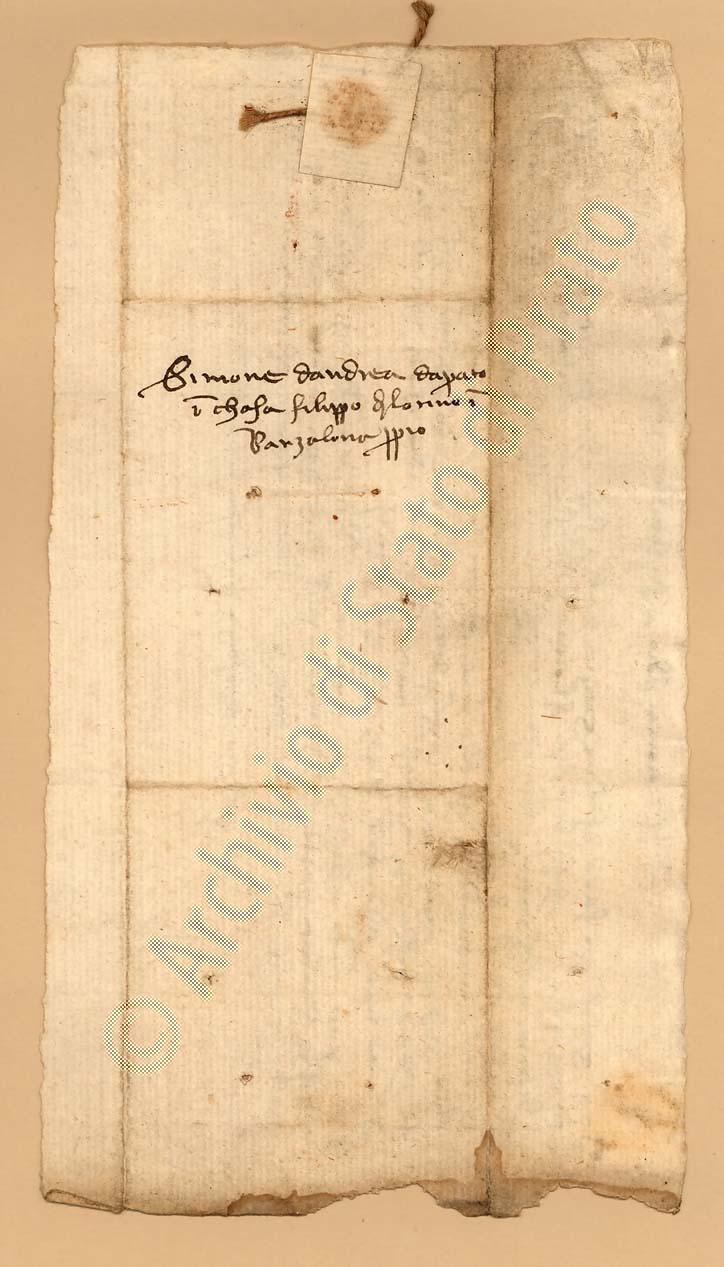 Simone dandrea daprato
ī chasa filippo di lorino ī
Barzalona pprio
© Archivio di Stato di Prato